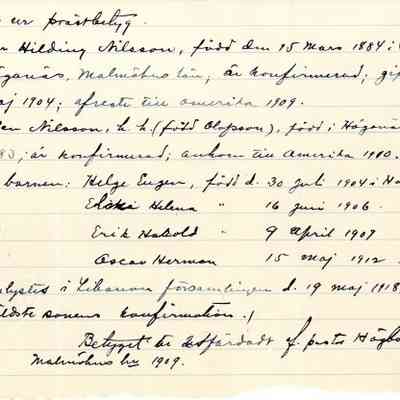 ur prästbetyg.
Hilding Nilsson, född den 15 Mars 1884 i
Höganäs, Malmöhus län, är konfirmerad; gif
maj 1904; afreste till Amerika 1909.
Nilsson, h. h. (född Olofsson), född i Höganä
83; är konfirmerad; ankom till Amerika 1910.
barnen: Helge Eugen, född d. 30 juli 1904 i Hö
Helena " 16 juni 1906.
Erik Harold " 9 April 1907
Oscar Herman 15 maj 1912.
i Libanon församlingen d. 19 maj 1918,
äldste sonens konfirmation.)
Betyget är utfärdadt af pastor Högb
Malmöhus län 1909.